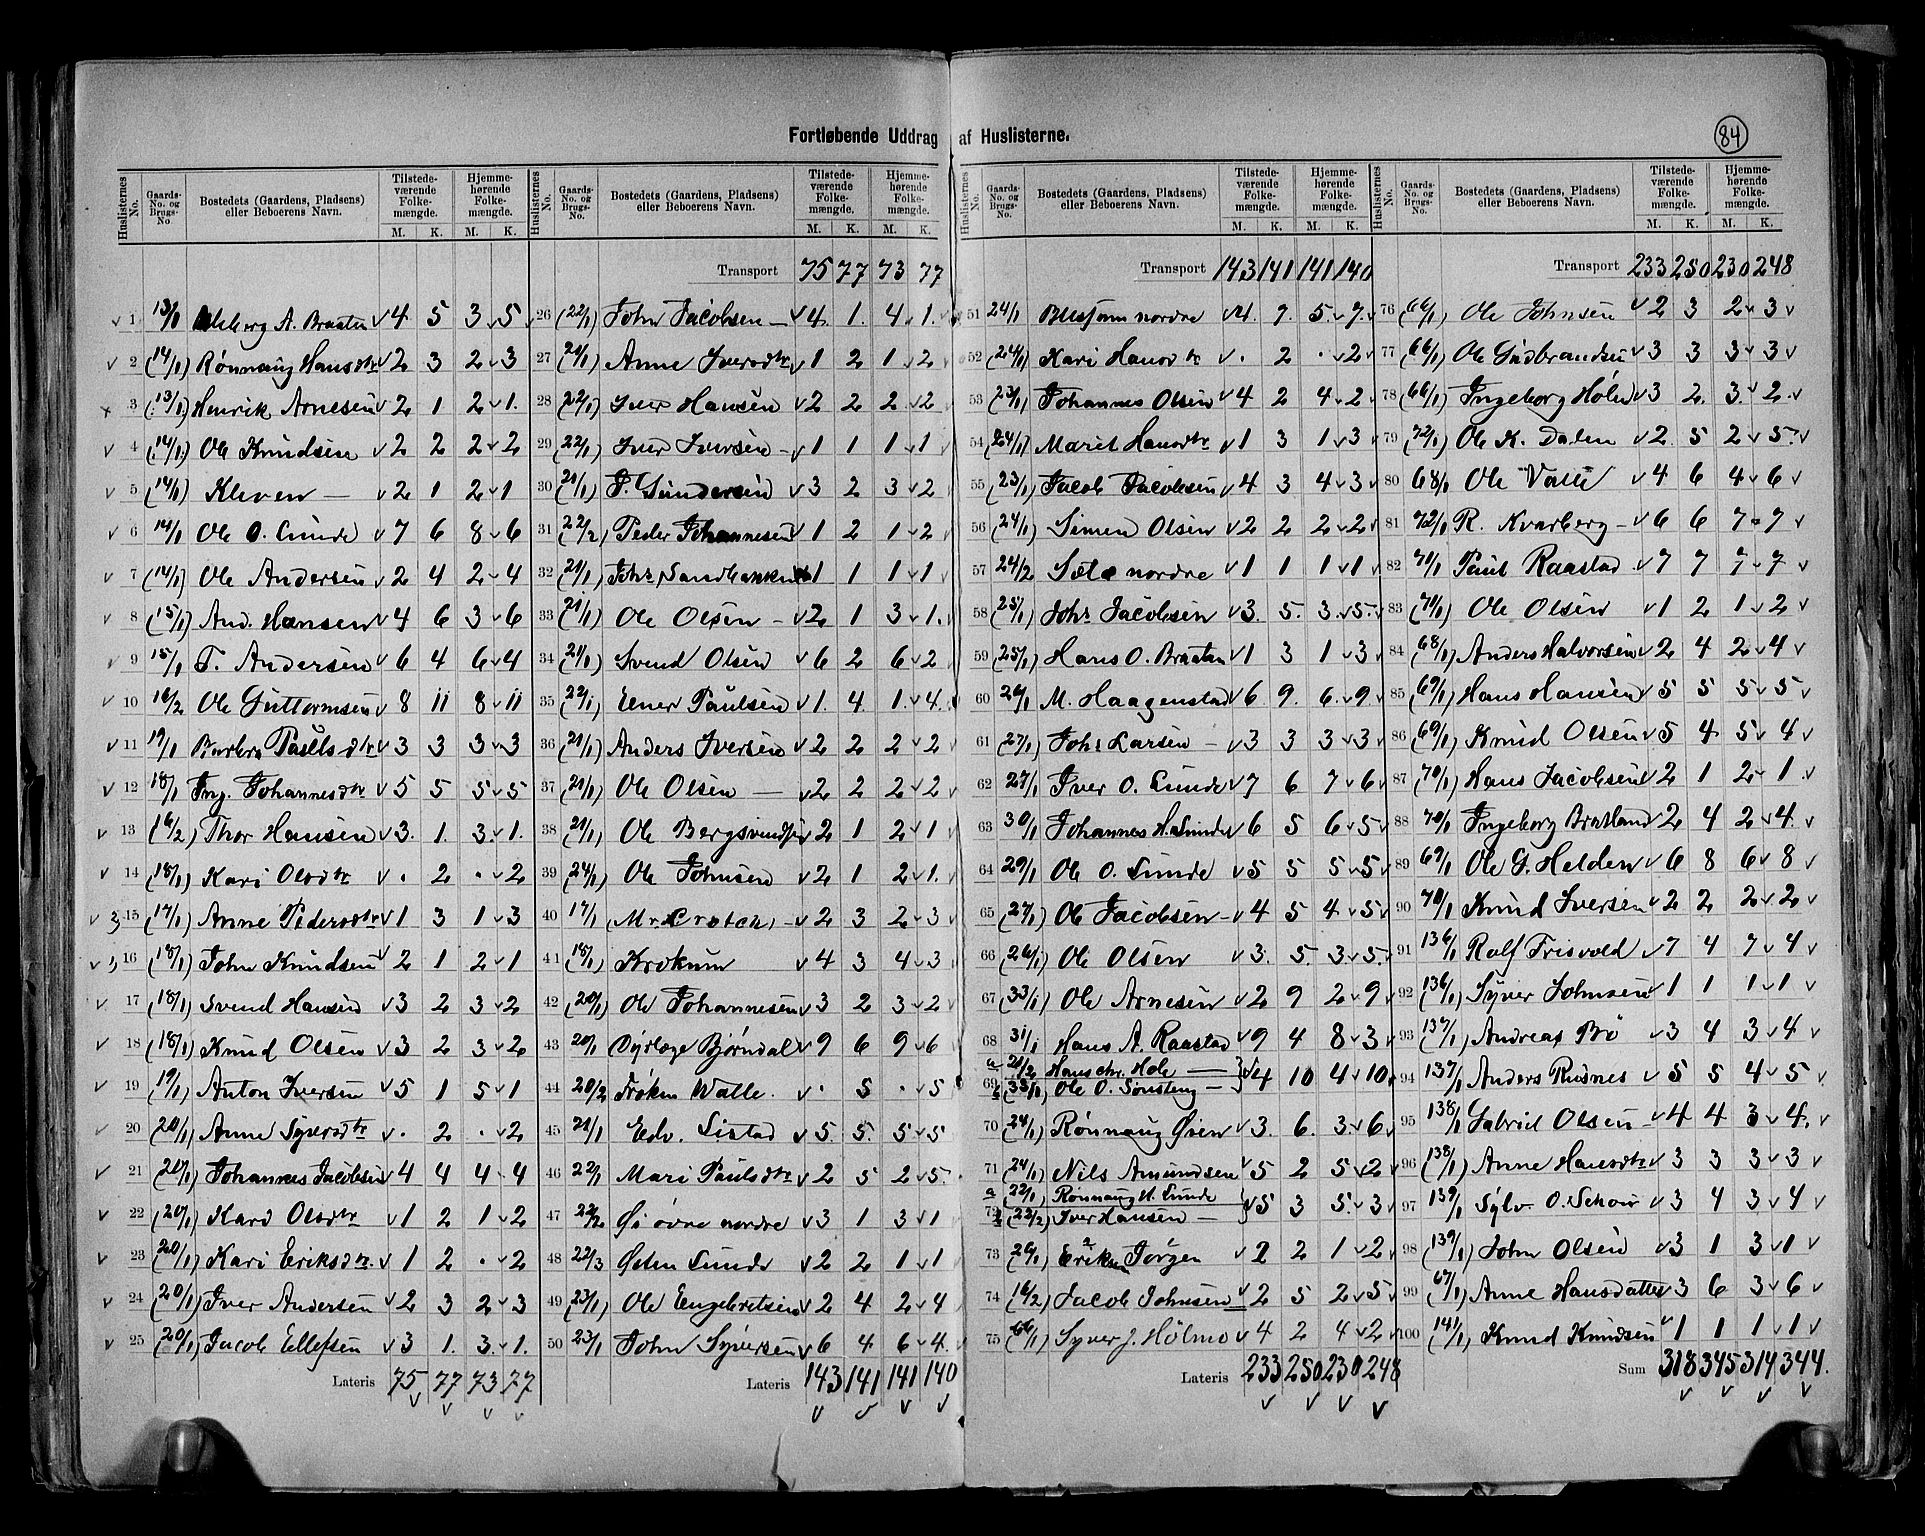 Fortløbende Uddrag af Huslisterne.
84
Huslisternes No.
Gaards-No. og Brugs-No
Bostedets (Gaardens, Pladsens) eller Beboerens Navn.
Tilstedeværende Folkemængde.
Hjemmehørende Folkemængde.
M. K. M. K.
1 13/1 A. Braaten 4 5 3 5
2 (14/1) Rønnaug Hansdtr 2 3 2 3
3 (13/1) Henrik Arnesen 2 1 2 1
4 (14/1) Ole Knudsen 2 2 2 2
5 (14/1) Kleven — 2 1 2 1
6 14/1 Ole O. Lunde 7 6 8 6
7 (14/1) Ole Andersen 2 4 2 4
8 (15/1) And. Hansen 4 6 3 6
9 15/1 T. Andersen 6 4 6 4
10 16/2 Ole Guttormsen 8 11 8 11
11 19/1 Barbra Paulsdtr 3 3 3 3
12 18/1 Ing. Johannesdtr 5 5 5 5
13 (16/2) Thor Hansen 3 1 3 1
14 (18/1) Kari Olsdtr . 2 . 2
15 (17/1) Anne Pedersdtr 1 3 1 3
16 (18/1) John Knudsen 2 1 2 1
17 (18/1) Svend Hansen 3 2 3 2
18 (18/1) Knud Olsen 3 2 3 2
19 (19/1) Anton Iversen 5 1 5 1
20 (20/1) Anne Syversdtr . 2 . 2
21 (20/1) Johannes Jacobsen 4 4 4 4
22 (20/1) Kari Olsdtr 1 2 1 2
23 (20/1) Kari Eriksdtr. 1 2 . 2
24 (20/1) Iver Andersen 2 3 2 3
25 (20/1) Jacob Ellefsen 3 1 3 1
Lateris 75 77 73 77
Huslisternes No.
Gaards-No. og Brugs-No.
Bostedets (Gaardens, Pladsens) eller Beboerens Navn.
Tilstedeværende Folkemængde.
Hjemmehørende Folkemængde.
M. K. M. K.
Transport 75 77 73 77
26 (22/1) John Jacobsen — 4 1 4 1
27 (21/1) Anne Iversdtr 1 2 1 2
28 (22/1) Iver Hansen 2 2 2 2
29 (22/1) Iver Iversen — 1 1 1 1
30 (21/1) P. Gundersen 3 2 3 2
31 (22/2) Peder Johannesen 1 2 1 2
32 (21/1) Johs. Sandbakken 1 1 1 1
33 (21/1) Ole Olsen — 2 1 3 1
34 (21/1) Svend Olsen 6 2 6 2
35 (22/1) Ener Paulsen 1 4 1 4
36 (21/1) Anders Iversen 2 2 2 2
37 (21/1) Ole Olsen — 2 2 2 2
38 (21/1) Ole Bergsvendsen 2 1 2 1
39 (24/1) Ole Johnsen 2 1 2 1
40 17/1 (Mr. Crotch) — 2 3 2 3
41 (18/1) Krokum 4 3 4 3
42 (20/1) Ole Johannesen 3 2 3 2
43 20/1 Dyrlæge Bjørndal 9 6 9 6
44 20/2 Frøken Walle. . 5 . 5
45 21/1 Edv. Listad 5 5 5 5
46 22/1 Mari Paulsdtr 2 5 2 5
47 22/2 Øi øvre nordre 3 1 3 1
48 22/3 Østen Lunde 2 2 1 1
49 (23/1) Ole Engebretsen 2 4 2 4
50 23/1 John Syversen 6 4 6 4
Lateris 143 141 141 140
Huslisternes No.
Gaards-No. og Brugs-No.
Bostedets (Gaardens, Pladsens) eller Beboerens Navn.
Tilstedeværende Folkemængde.
Hjemmehørende Folkemængde.
M. K. M. K.
Transport 143 141 141 140
51 24/1 nordre 4 7 5 7
52 (24/1) Kari Hansdtr . 2 . 2
53 (23/1) Johannes Olsen 4 2 4 2
54 (24/1) Marit Hansdtr 1 3 1 3
55 (23/1) Jacob Jacobsen 4 3 4 3
56 (24/1) Simen Olsen 2 2 2 2
57 24/2 Sæte nordre 1 1 1 1
58 (25/1) Johs Jacobsen 3 5 3 5
59 (25/1) Hans O. Braaten 1 3 1 3
60 26/1 M. Haagenstad 6 9 6 9
61 (27/1) Johs Larsen — 3 3 3 3
62 27/1 Iver O. Lunde 7 6 7 6
63 30/1 Johannes H. Lunde 6 5 6 5
64 29/1 Ole O. Lunde 5 5 5 5
65 (27/1) Ole Jacobsen 4 5 4 5
66 (26/1) Ole Olsen 3 5 3 5
67 (33/1) Ole Arnesen 2 9 2 9
68 31/1 Hans A. Raastad 9 4 8 3
69 a 21/2 Hans Chr. Hole —
b (33/1) Ole O. Sønsteng — 4 10 4 10
70 (24/1) Rønnaug Øien 3 6 3 6
71 (24/1) Nils Amundsen 5 2 5 2
72 a (22/1) Rønnaug H. Lunde
b (22/2) Iver Hansen — 5 3 5 3
73 (26/1) Eriksen Jørgen 2 2 1 2
74 (16/2) Jacob Johnsen 2 5 2 5
75 (66/1) Syver J. Hølmo 4 2 4 2
Lateris 233 250 230 248
Huslisternes No.
Gaards-No. og Brugs-No.
Bostedets (Gaardens, Pladsens) eller Beboerens Navn.
Tilstedeværende Folkemængde.
Hjemmehørende Folkemængde.
M. K. M. K.
Transport 233 250 230 248
76 (66/1) Ole Johnsen 2 3 2 3
77 (66/1) Ole Gudbrandsen 3 3 3 3
78 (66/1) Ingeborg Hølen 3 2 3 2
79 (72/1) Ole K. Dalen 2 5 2 5
80 68/1 Ole Valle 4 6 4 6
81 72/1 R. Kvarberg — 6 6 7 7
82 71/1 Paul Raastad 7 7 7 7
83 (71/1) Ole Olsen 1 2 1 2
84 (68/1) Anders Halvorsen 2 4 2 4
85 (69/1) Hans Hansen 5 5 5 5
86 (69/1) Knud Olsen 5 4 5 4
87 (70/1) Hans Jacobsen 2 1 2 1
88 70/1 Ingeborg Bratland 2 4 2 4
89 69/1 Ole G. Helden 6 8 6 8
90 70/1 Knud Iversen 2 2 2 2
91 136/1 Rolf Frisvold 7 4 7 4
92 (136/1) Syver Johnsen 1 1 1 1
93 (137/1) Andreas Bø 3 4 3 4
94 137/1 Anders Rusnes 5 5 4 5
95 138/1 Gabriel Olsen 4 4 3 4
96 (138/1) Anne Hansdtr 3 3 3 3
97 139/1 Sylv. O. Schow 3 4 3 4
98 (139/1) John Olsen 3 1 3 1
99 (67/1) Anne Hansdatter 3 6 3 6
100 (141/1) Knud Knudsen 1 1 1 1
Sum 318 345 314 344.